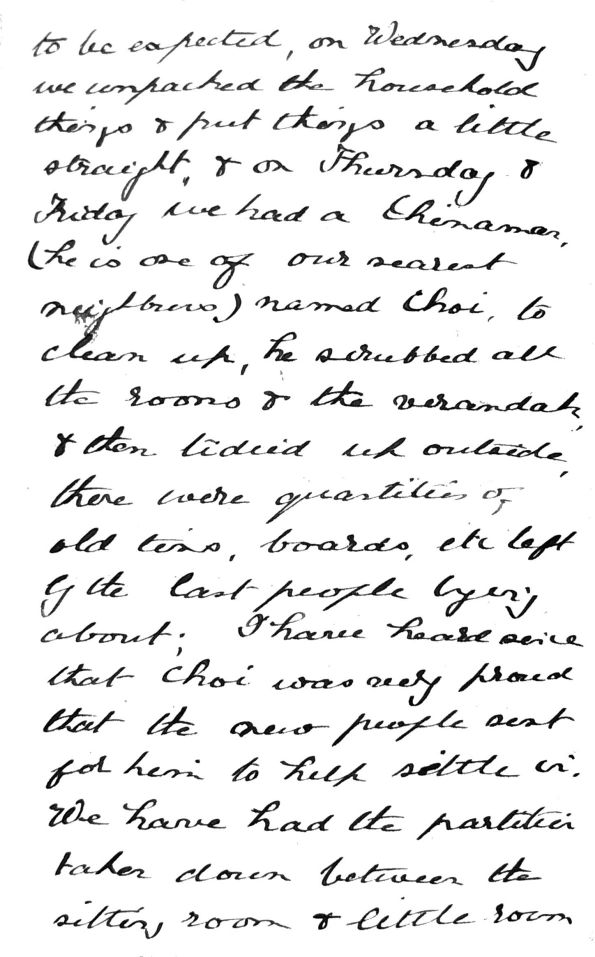 to be expected, on Wednesday
we unpacked the household
things & put things a little
straight, & on Thursday &
Friday we had a Chinaman,
(he is one of our nearest
neighbours) named Choi, to
clean up, he scrubbed all
the rooms & the verandah,
& then tidied up outside,
there were quantities of
old tins, boards, etc left
by the last people lying
about; I have heard since
that Choi was very proud
that the new people sent
for him to help settle in.
We have had the partition
taken down between the
sitting room & little room